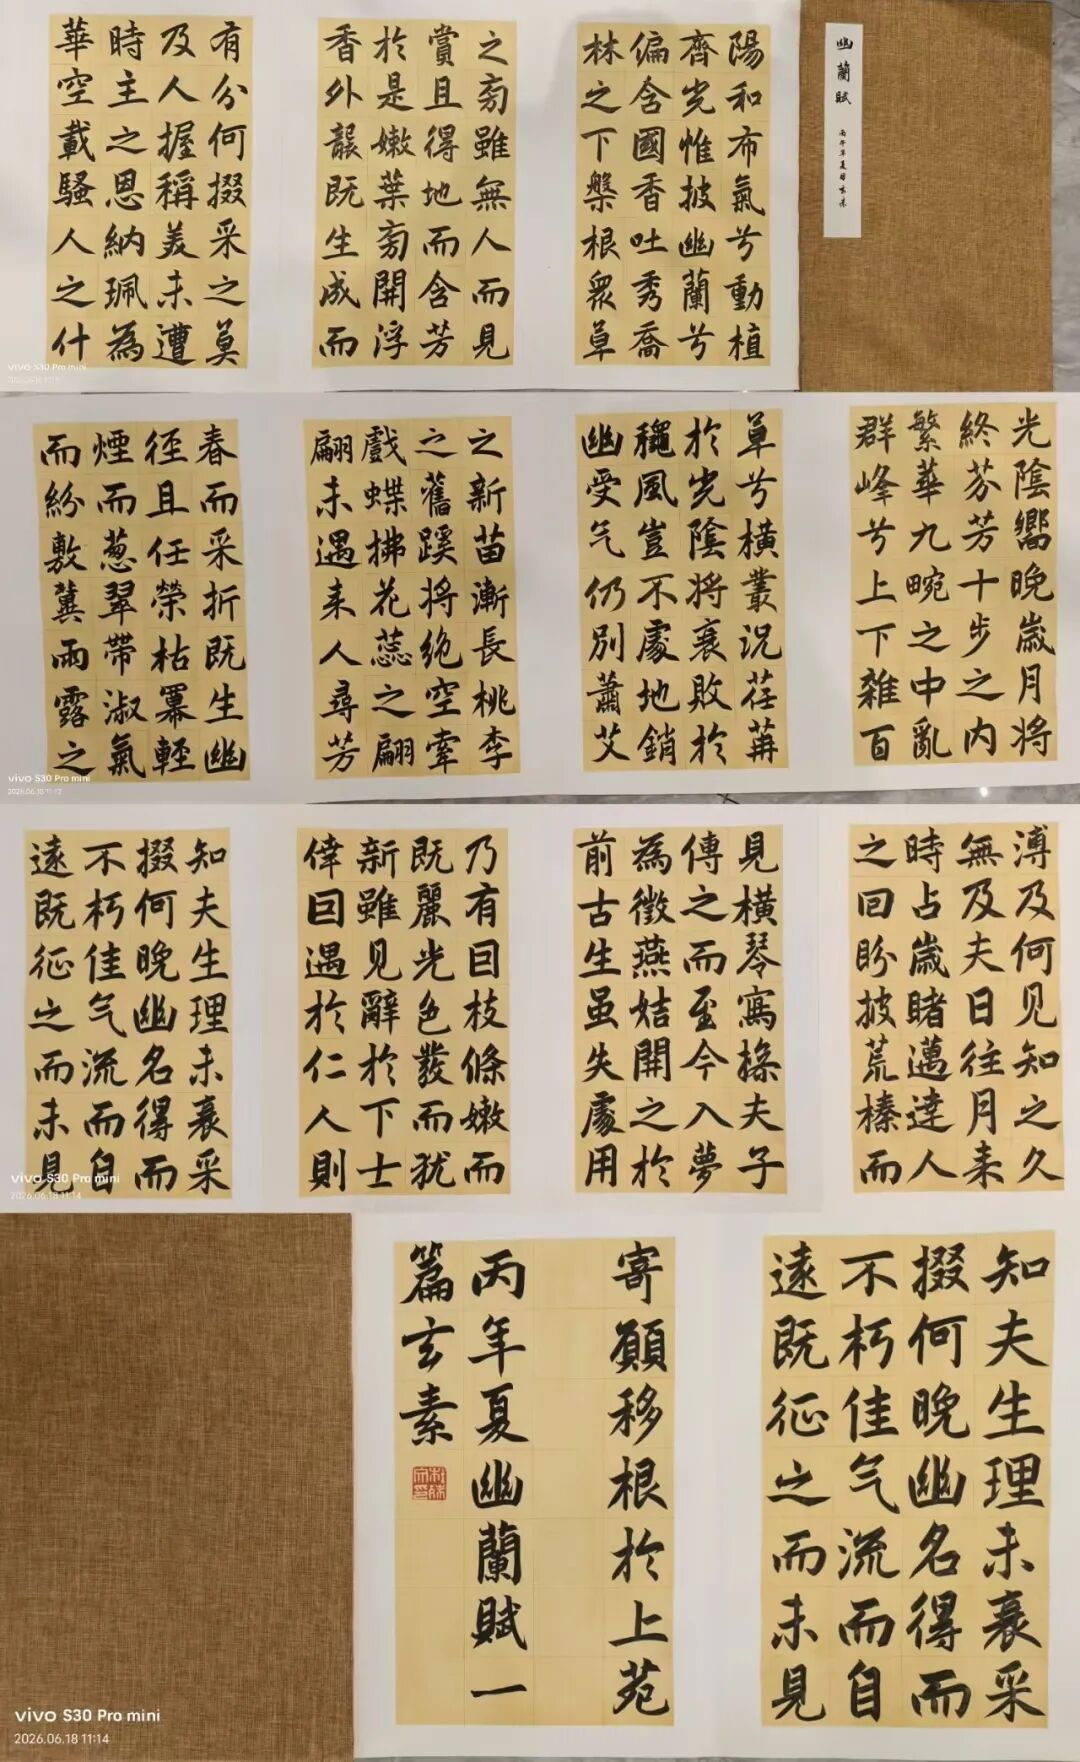 幽蘭賦
丙午年夏日玄素
陽和布氣兮動植
齊光惟披幽蘭兮
偏含國香吐秀喬
林之下槃根眾草
之旁雖無人而見
賞且得地而含芳
於是嫩葉旁開浮
香外襲既生成而
有分何掇采之莫
及人握稱美未遭
時主之恩納珮為
華空載騷人之什
vivo S30 Pro mini
光陰嚮晚歲月將
終芬芳十步之內
繁華九畹之中亂
群峰兮上下雜百
草兮橫叢況荏苒
於光陰將衰敗於
穐風豈不處地銷
幽受气仍別蕭艾
之新苗漸長桃李
之舊蹊將絕空牽
戲蝶拂花蕊之翩
翩未遇來人尋芳
春而采折既生幽
徑且任榮枯冪輕
煙而葱翠帶淑氣
而紛敷冀雨露之
vivo S30 Pro mini
2026.06.18 11:13
溥及何见知之久
無及夫日往月来
時占歲睹邁達人
之回盼披荒榛而
見橫琴寫操夫子
傳之而至今入夢
為徵燕姞開之於
前古生虽失處用
乃有囙枝條嫩而
既麗光色發而猶
新雖見辭於下士
倖囙遇於仁人則
知夫生理未衰采
掇何晚幽名得而
不朽佳气流而自
遠既征之而未見
vivo S30 Pro mini
2026.06.18 11:14
知夫生理未衰采
掇何晚幽名得而
不朽佳气流而自
遠既征之而未見
寄願移根於上苑
丙年夏幽蘭賦一
篇玄素
vivo S30 Pro mini
2026.06.18 11:14